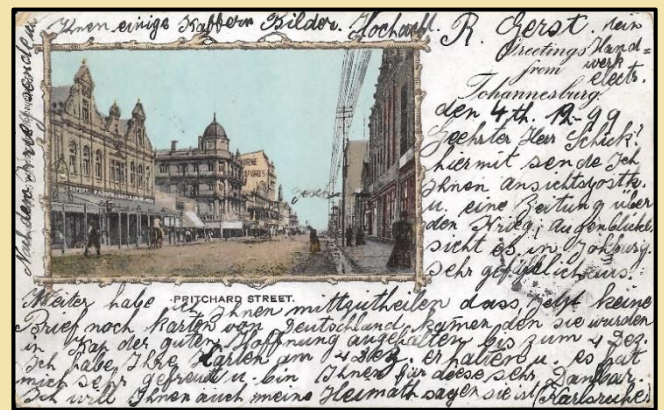 Ihnen einige Kaffern Bilder. Hochachtl. R. Gerst. dein
Greetings Hand=
from werk
Johannesburg. electr.
den 4th. 12-99
Geehrter Herr Schick!
hiermit sende Ich
Ihnen ansichtspostk.
u. eine Zeitung über
den Krieg, augenblickl.
sieht es in Johburg.
sehr gefährlich aus!
PRITCHARD STREET.
Weiter habe ich Ihnen mittzutheilen dass jetzt keine
Brief noch Karten von Deutschland kamen den sie wurden
in Kap der guten Hoffnung angehalten bis zum 4 Dez.
Ich habe Ihre Karten am 4 Dez. erhalten u. es hat
mich sehr gefreut u. bin Ihnen für diese sehr Dankbar.
Ich will Ihnen auch meine Heimath sagen sie ist (Karlsruhe)
Nächstens sende